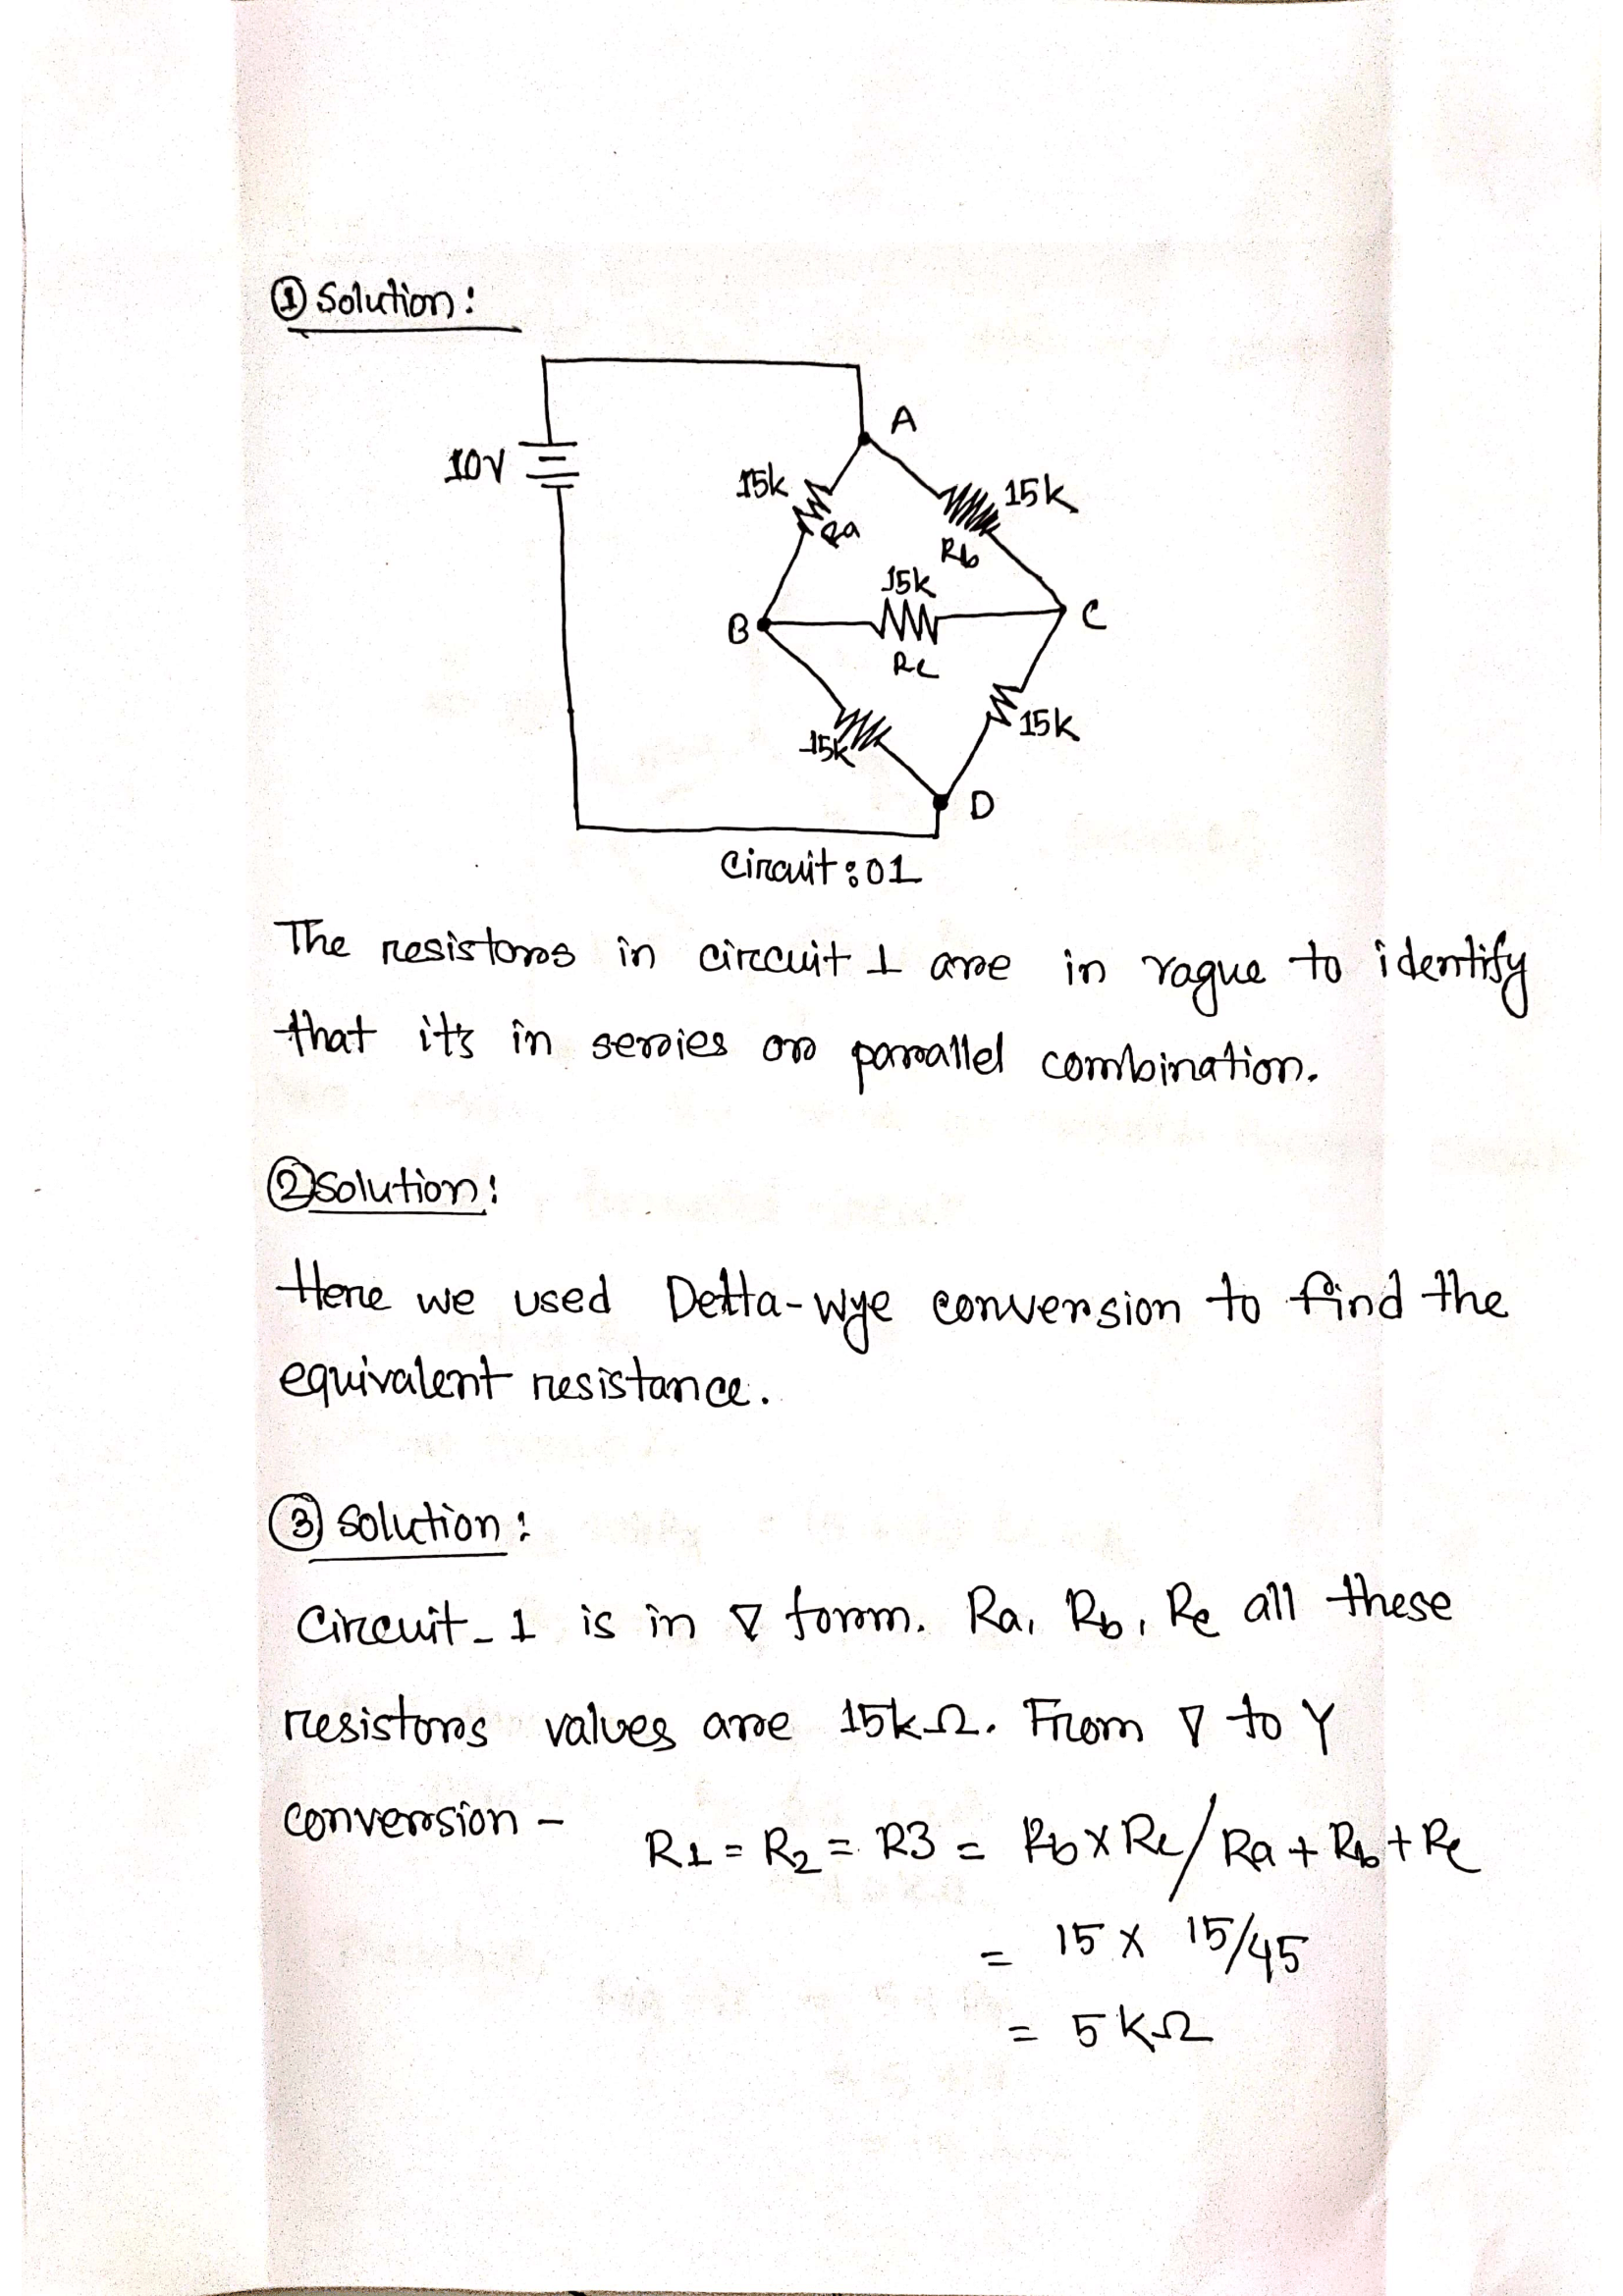 ① Solution:
A
10V
15k
15k
Ra
Rb
15k
B
C
Rc
15k
15k
D
Circuit:01
The resistors in circuit 1 are in vague to identify
that it's in series or parallel combination.
② Solution:
Here we used Delta-Wye conversion to find the
equivalent resistance.
③ Solution:
Circuit-1 is in ∇ form. Ra, Rb, Rc all these
resistors values are 15kΩ. From ∇ to Y
conversion -
R1 = R2 = R3 = Rb x Rc / Ra + Rb + Rc
= 15 x 15/45
= 5 KΩ